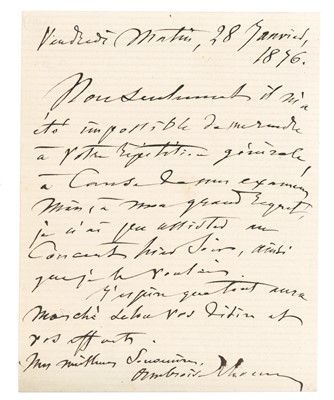 Vendredi Matin, 28 Janvier,
1876.
Non seulement il m'a
été impossible de me rendre
à votre Répétition générale,
à Cause de mes examens
Mais, à mon grand Regret,
je n'ai pu assister au
Concert hier Soir, ainsi
que je le voulais.
J'espère que tout aura
marché selon vos désirs et
vos efforts.
Mes meilleurs Souvenirs,
Ambroise Thomas